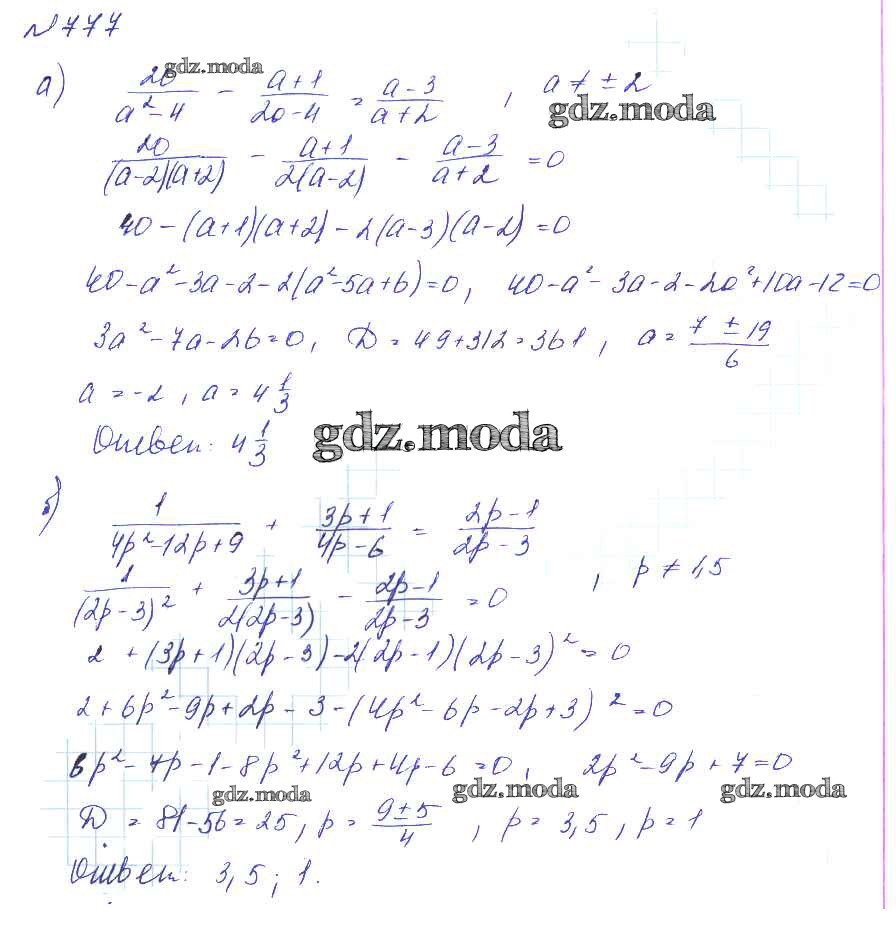 №777
gdz.moda
а) 20/(a²-4) - (a+1)/(20-4) = (a-3)/(a+2) , a ≠ ±2
gdz.moda
20/((a-2)(a+2)) - (a+1)/(2(a-2)) - (a-3)/(a+2) = 0
40-(a+1)(a+2)-2(a-3)(a-2)=0
40-a²-3a-2-2(a²-5a+6)=0, 40-a²-3a-2-2a²+10a-12=0
3a²-7a-26=0, D=49+312=361, a=(7±19)/6
a=-2, a=4 1/3
Ответ: 4 1/3
gdz.moda
б) 1/(4p²-12p+9) + (3p+1)/(4p-6) = (2p-1)/(2p-3)
1/(2p-3)² + (3p+1)/(2(2p-3)) - (2p-1)/(2p-3) = 0 , p ≠ 1,5
2+(3p+1)(2p-3)-2(2p-1)(2p-3)²=0
2+6p²-9p+2p-3-(4p²-6p-2p+3)²=0
6p²-7p-1-8p²+12p+4p-6=0, 2p²-9p+7=0
gdz.moda gdz.moda gdz.moda
D=81-56=25, p=(9±5)/4, p=3,5, p=1
Ответ: 3,5; 1.